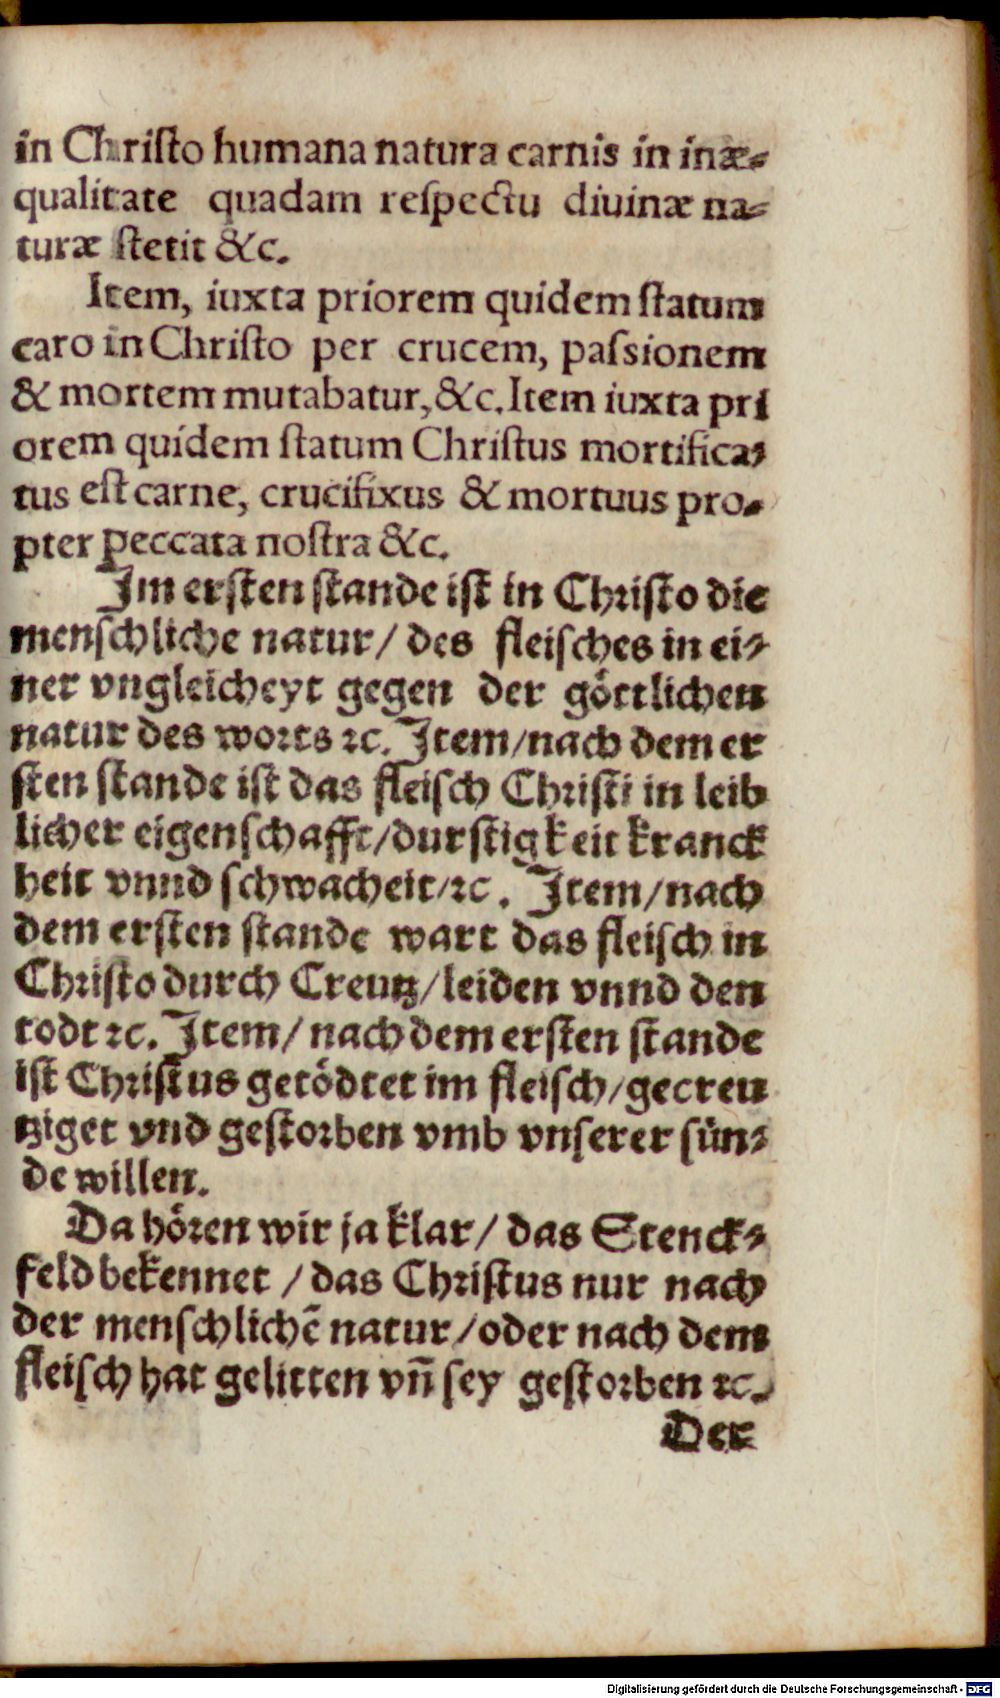 in Christo humana natura carnis in inæ-
qualitate quadam respectu diuinæ na-
turæ stetit &c.
Item, iuxta priorem quidem statum
caro in Christo per crucem, passionem
& mortem mutabatur, &c. Item iuxta pri
orem quidem statum Christus mortifica-
tus est carne, crucifixus & mortuus pro-
pter peccata nostra &c.
Im ersten stande ist in Christo die
menschliche natur/ des fleisches in ei-
ner vngleicheyt gegen der göttlichen
natur des worts ꝛc. Item/nach dem er
sten stande ist das fleisch Christi in leib
licher eigenschafft/durstigkeit kranck
heit vnnd schwacheit/ꝛc. Item/nach
dem ersten stande wart das fleisch in
Christo durch Creutz/leiden vnnd den
todt ꝛc. Item/ nach dem ersten stande
ist Christus getödtet im fleisch/gecreu
tziget vnd gestorben vmb vnserer sün-
de willen.
Da hören wir ja klar/ das Stenck-
feld bekennet /das Christus nur nach
der menschlichē natur/oder nach dem
fleisch hat gelitten vn̄ sey gestorben ꝛc.
Der
Digitalisierung gefördert durch die Deutsche Forschungsgemeinschaft - DFG